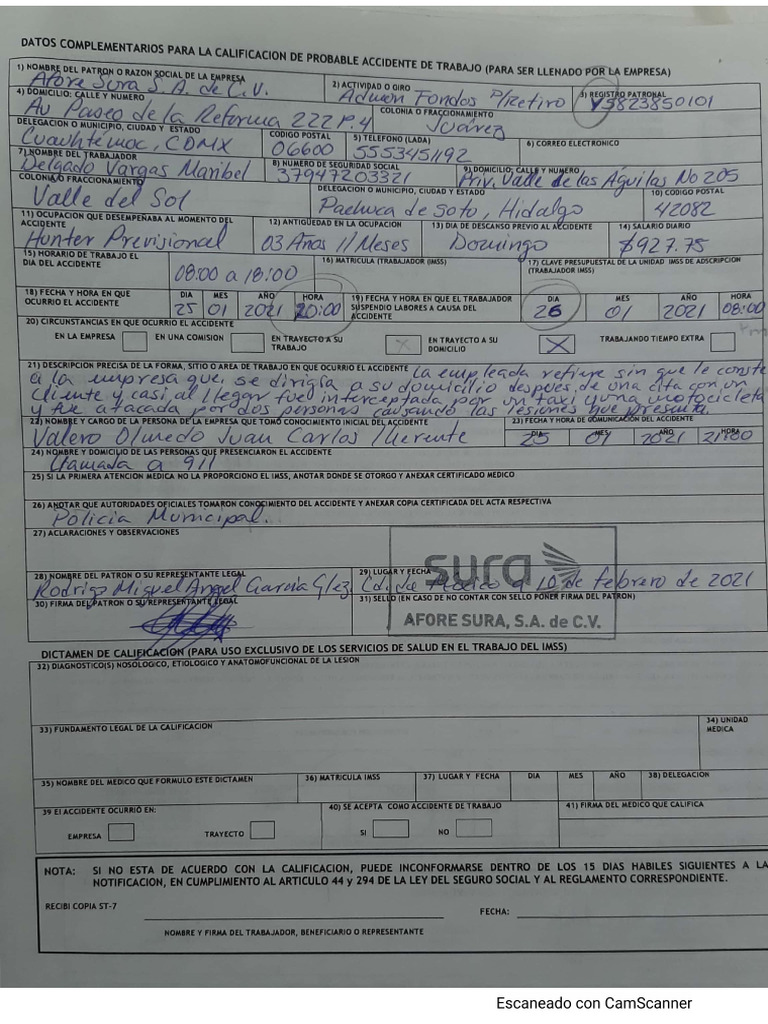 DATOS COMPLEMENTARIOS PARA LA CALIFICACION DE PROBABLE ACCIDENTE DE TRABAJO (PARA SER LLENADO POR LA EMPRESA)
1) NOMBRE DEL PATRON O RAZON SOCIAL DE LA EMPRESA
Afore Sura S.A. de C.V.
2) ACTIVIDAD O GIRO
Admón Fondos p/Retiro
3) REGISTRO PATRONAL
Y5823850101
4) DOMICILIO: CALLE Y NUMERO
Av Paseo de la Reforma 222 P.4
COLONIA O FRACCIONAMIENTO
Juárez
DELEGACION O MUNICIPIO, CIUDAD Y ESTADO
Cuauhtémoc, CDMX
CODIGO POSTAL
06600
5) TELEFONO (LADA)
5553451192
6) CORREO ELECTRONICO
7) NOMBRE DEL TRABAJADOR
Delgado Vargas Maribel
8) NUMERO DE SEGURIDAD SOCIAL
37947203321
9) DOMICILIO; CALLE Y NUMERO
Priv. Valle de las Águilas No 205
COLONIA O FRACCIONAMIENTO
Valle del Sol
DELEGACION O MUNICIPIO, CIUDAD Y ESTADO
Pachuca de Soto, Hidalgo
10) CODIGO POSTAL
42082
11) OCUPACION QUE DESEMPEÑABA AL MOMENTO DEL ACCIDENTE
Hunter Previsional
12) ANTIGÜEDAD EN LA OCUPACION
03 Años 11 Meses
13) DIA DE DESCANSO PREVIO AL ACCIDENTE
Domingo
14) SALARIO DIARIO
$927.75
15) HORARIO DE TRABAJO EL DIA DEL ACCIDENTE
08:00 a 18:00
16) MATRICULA (TRABAJADOR IMSS)
17) CLAVE PRESUPUESTAL DE LA UNIDAD IMSS DE ADSCRIPCION (TRABAJADOR IMSS)
18) FECHA Y HORA EN QUE OCURRIO EL ACCIDENTE
DIA MES AÑO HORA
25 01 2021 20:00
19) FECHA Y HORA EN QUE EL TRABAJADOR SUSPENDIO LABORES A CAUSA DEL ACCIDENTE
DIA MES AÑO HORA
26 01 2021 08:00
20) CIRCUNSTANCIAS EN QUE OCURRIO EL ACCIDENTE
EN LA EMPRESA
EN UNA COMISION
EN TRAYECTO A SU TRABAJO
X
EN TRAYECTO A SU DOMICILIO
X
TRABAJANDO TIEMPO EXTRA
21) DESCRIPCION PRECISA DE LA FORMA, SITIO O AREA DE TRABAJO EN QUE OCURRIO EL ACCIDENTE La empleada refiere sin que le conste
a la empresa que, se dirigía a su domicilio después de una cita con un
cliente y casi al llegar fue interceptada por un taxi y una motocicleta
y fue atacada por dos personas causando las lesiones que presenta.
22) NOMBRE Y CARGO DE LA PERSONA DE LA EMPRESA QUE TOMO CONOCIMIENTO INICIAL DEL ACCIDENTE
Valero Olmedo Juan Carlos / Gerente
23) FECHA Y HORA DE COMUNICACION DEL ACCIDENTE
DIA MES AÑO HORA
25 01 2021 21:00
24) NOMBRE Y DOMICILIO DE LAS PERSONAS QUE PRESENCIARON EL ACCIDENTE
Llamada a 911
25) SI LA PRIMERA ATENCION MEDICA NO LA PROPORCIONO EL IMSS, ANOTAR DONDE SE OTORGO Y ANEXAR CERTIFICADO MEDICO
26) ANOTAR QUE AUTORIDADES OFICIALES TOMARON CONOCIMIENTO DEL ACCIDENTE Y ANEXAR COPIA CERTIFICADA DEL ACTA RESPECTIVA
Policía Municipal.
27) ACLARACIONES Y OBSERVACIONES
sura
28) NOMBRE DEL PATRON O SU REPRESENTANTE LEGAL
Rodrigo Miguel Angel Garcia Glez.
29) LUGAR Y FECHA
Cd. de México a 10 de febrero de 2021
30) FIRMA DEL PATRON O SU REPRESENTANTE LEGAL
31) SELLO (EN CASO DE NO CONTAR CON SELLO PONER FIRMA DEL PATRON)
AFORE SURA, S.A. de C.V.
DICTAMEN DE CALIFICACIÓN (PARA USO EXCLUSIVO DE LOS SERVICIOS DE SALUD EN EL TRABAJO DEL IMSS)
32) DIAGNOSTICO(S) NOSOLOGICO, ETIOLOGICO Y ANATOMOFUNCIONAL DE LA LESION
33) FUNDAMENTO LEGAL DE LA CALIFICACION
34) UNIDAD MEDICA
35) NOMBRE DEL MEDICO QUE FORMULO ESTE DICTAMEN
36) MATRICULA IMSS
37) LUGAR Y FECHA
DIA MES AÑO
38) DELEGACION
39 El ACCIDENTE OCURRIÓ EN:
EMPRESA
TRAYECTO
40) SE ACEPTA COMO ACCIDENTE DE TRABAJO
SI
NO
41) FIRMA DEL MEDICO QUE CALIFICA
NOTA: SI NO ESTA DE ACUERDO CON LA CALIFICACION, PUEDE INCONFORMARSE DENTRO DE LOS 15 DIAS HABILES SIGUIENTES A LA
NOTIFICACION, EN CUMPLIMIENTO AL ARTICULO 44 y 294 DE LA LEY DEL SEGURO SOCIAL Y AL REGLAMENTO CORRESPONDIENTE.
RECIBI COPIA ST-7
FECHA:
NOMBRE Y FIRMA DEL TRABAJADOR, BENEFICIARIO O REPRESENTANTE
Escaneado con CamScanner